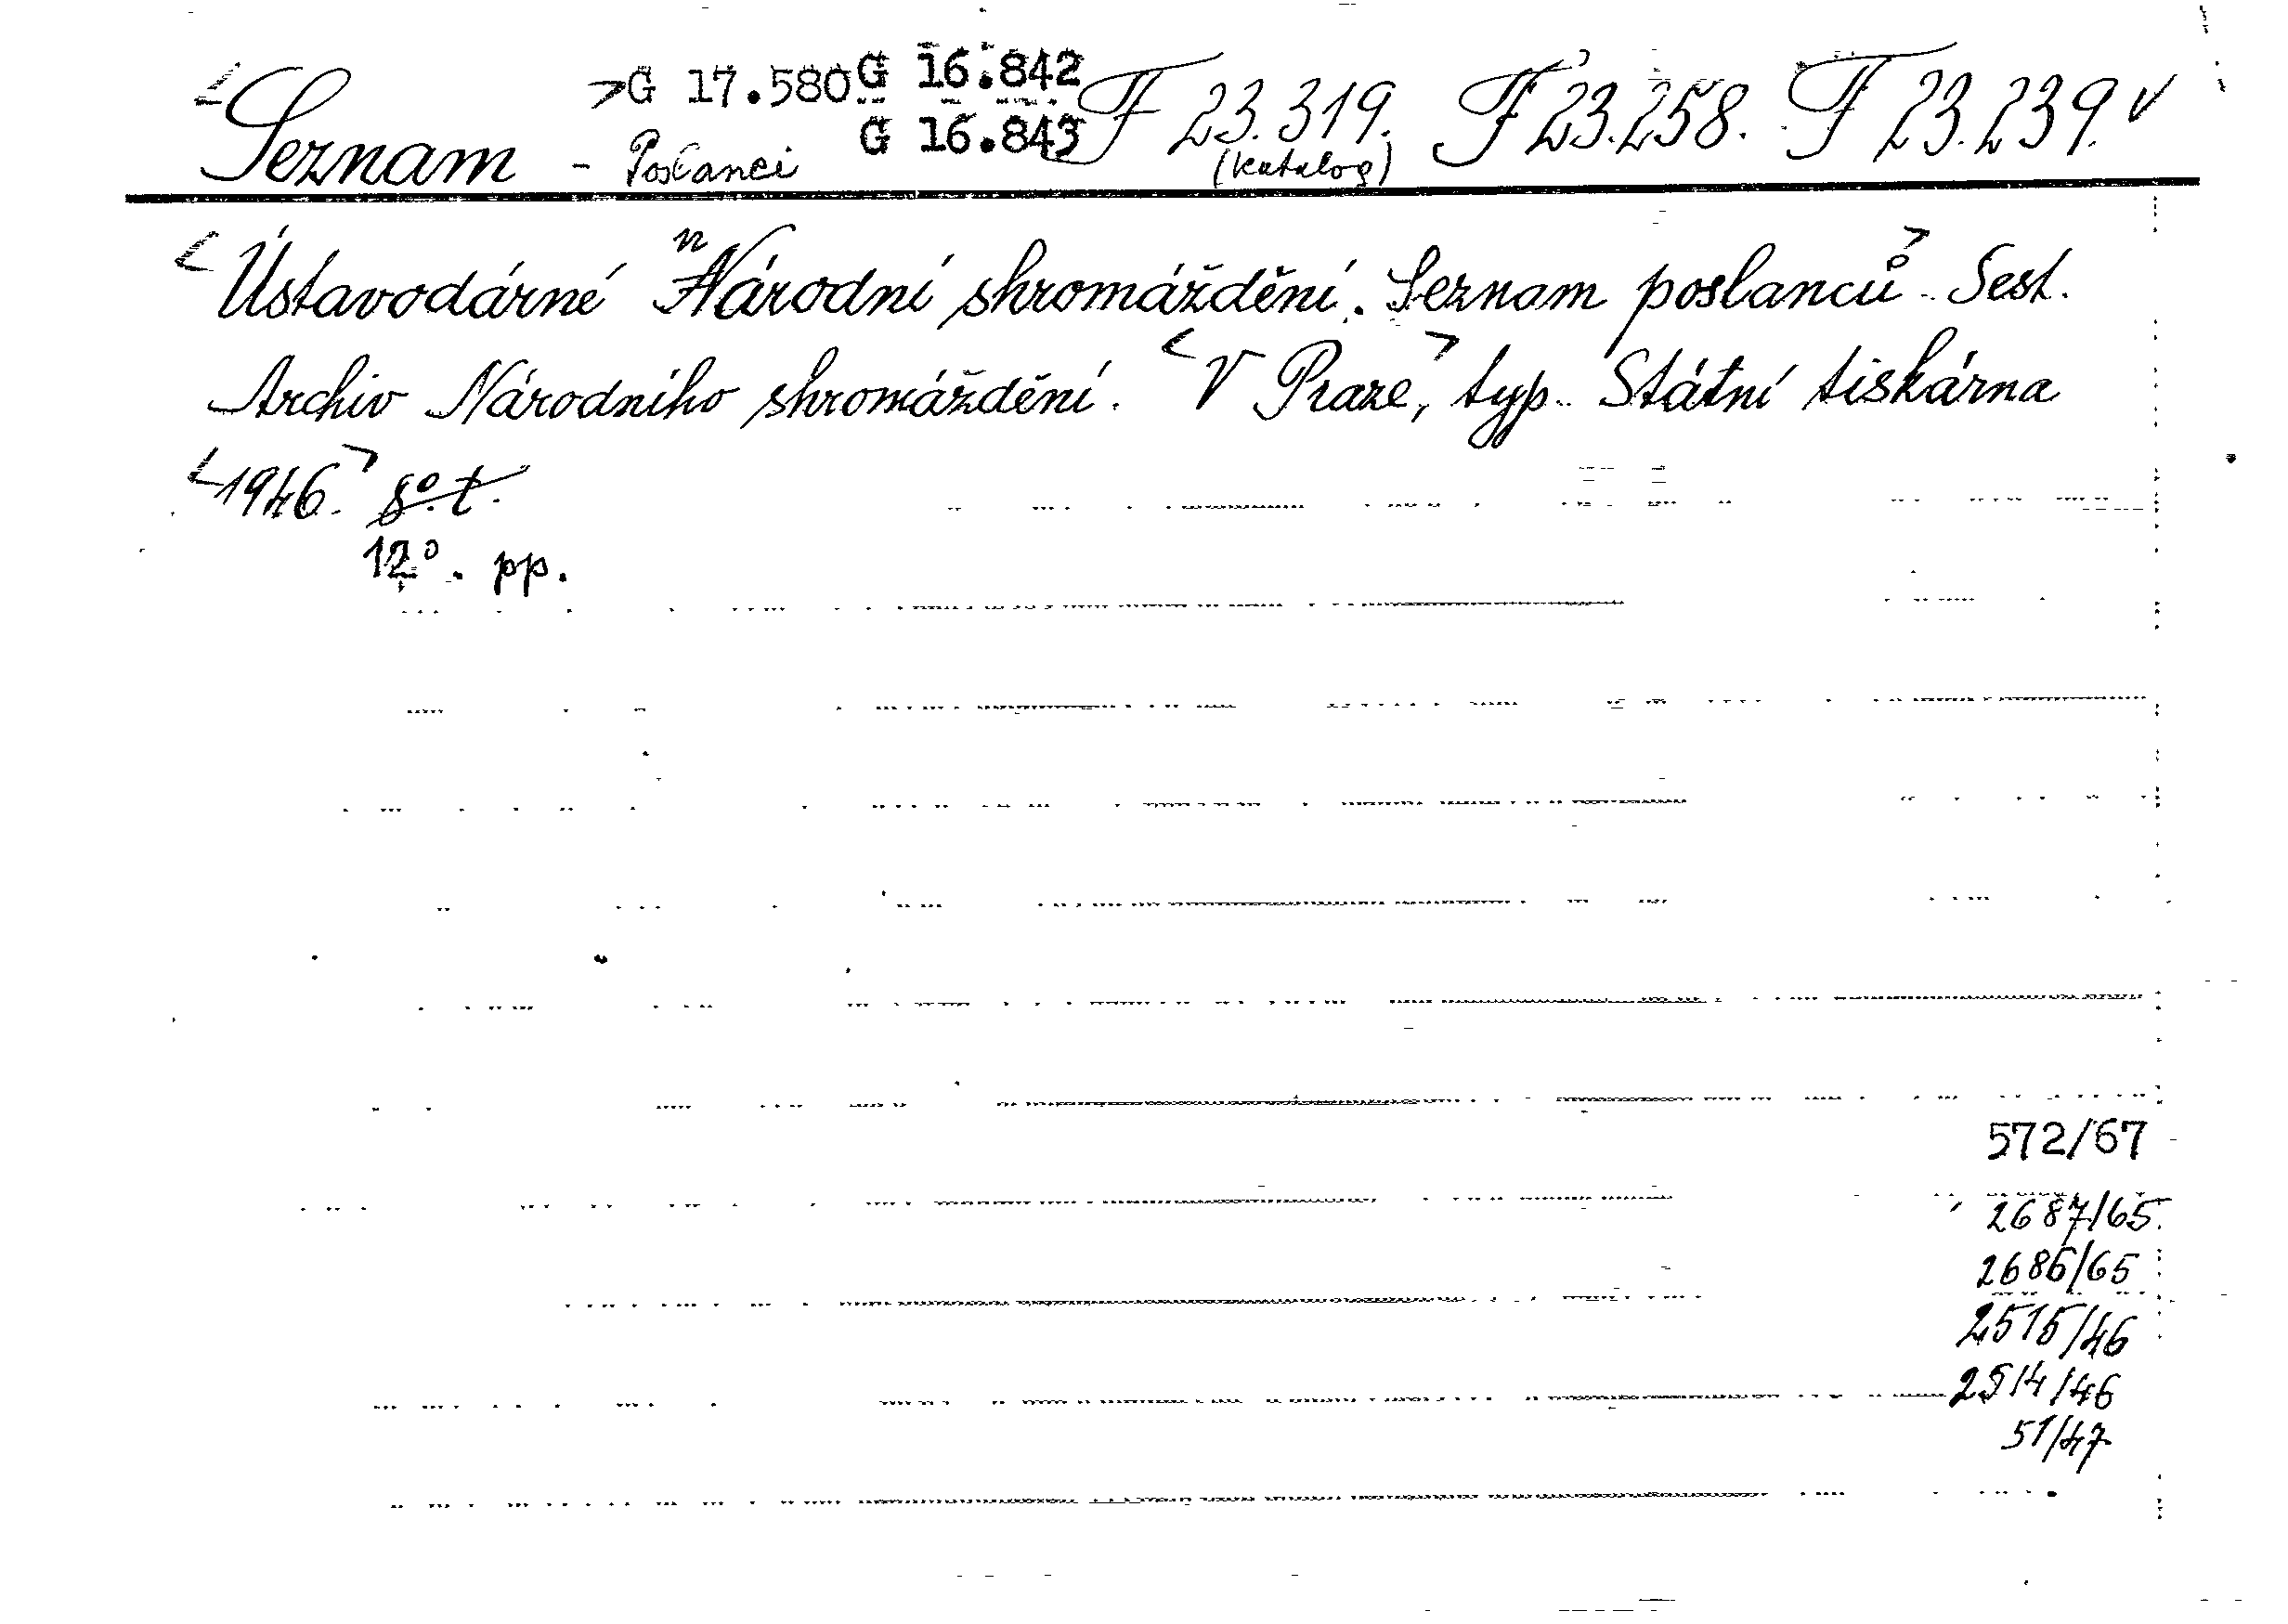 <Seznam - Poslanci >G 17.580 G 16.842 G 16.843 F 23.319. (katalog) F 23.258. F 23.239. v
<Ústavodárné nNárodní shromáždění. Seznam poslanců>. Sest.
Archiv Národního shromáždění. <V Praze,> typ. Státní tiskárna
<1946.> 8°. t.
12°. pp.
572/67
2687/65
2686/65
2515/46
2514/46
51/47